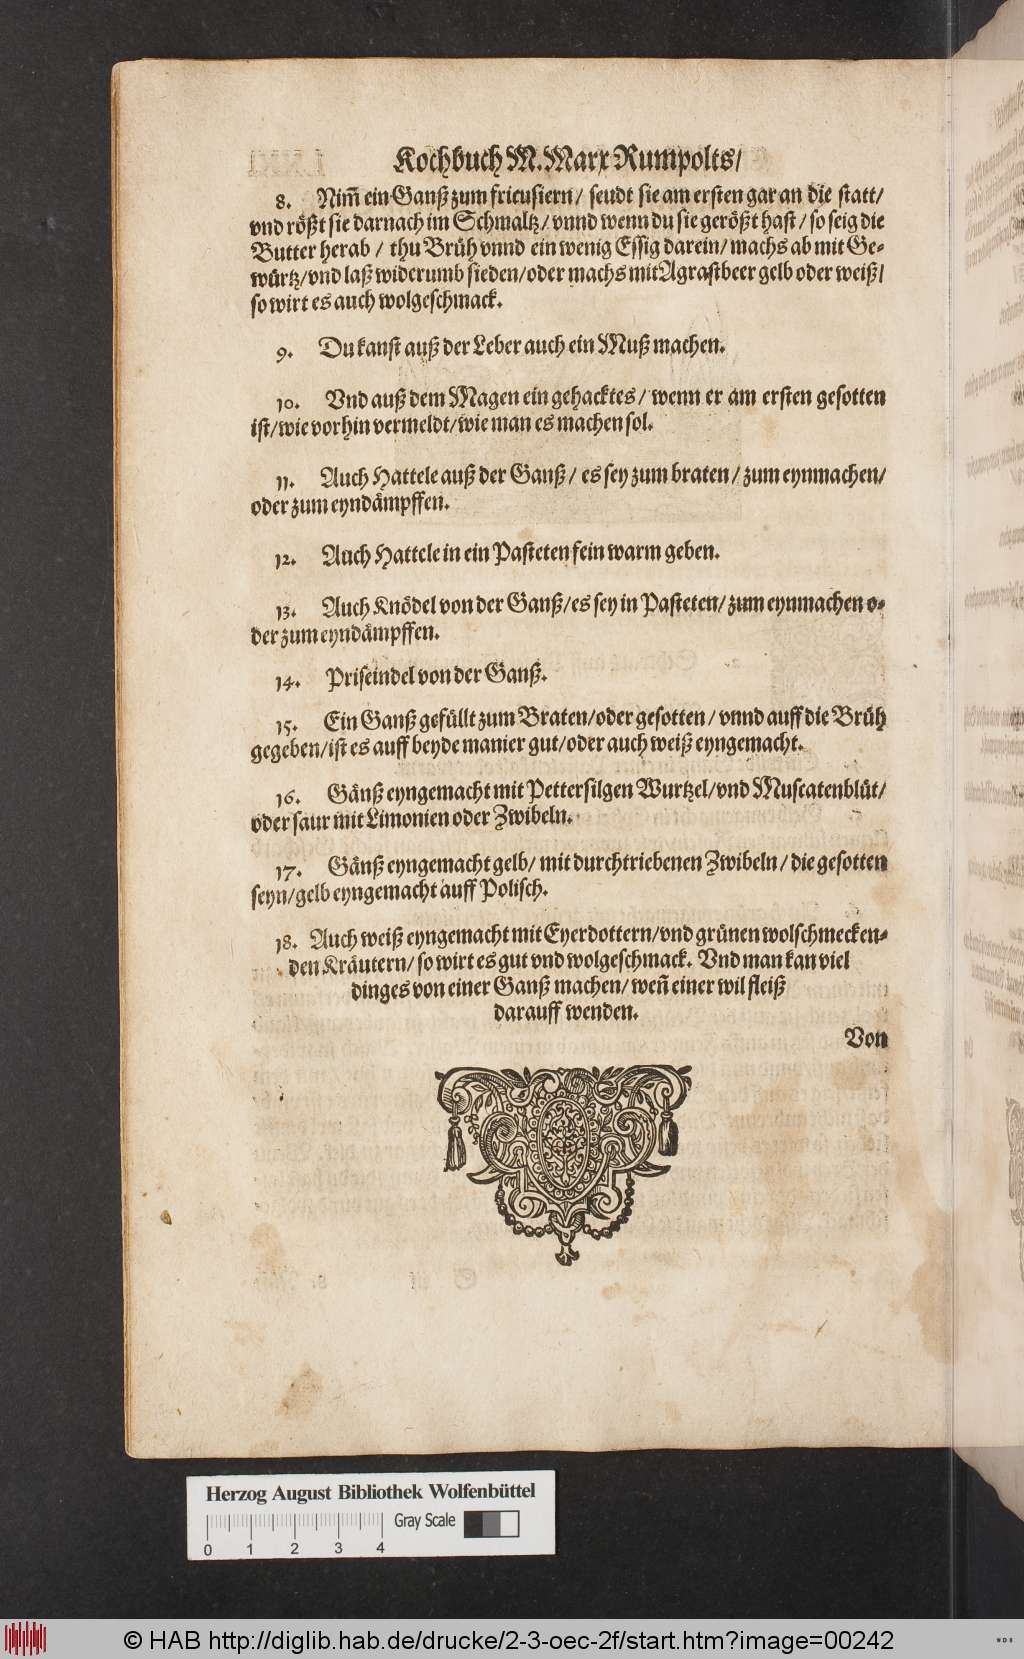 Kochbuch M. Marx Rumpolts/
8. Nim̃ ein Ganß zum fricusiern/ seudt sie am ersten gar an die statt/
vnd rößt sie darnach im Schmaltz/ vnnd wenn du sie gerößt hast/ so seig die
Butter herab/ thu Brüh vnnd ein wenig Essig darein/ machs ab mit Ge-
würtz/ vnd laß widerumb sieden/ oder machs mit Agrastbeer gelb oder weiß/
so wirt es auch wolgeschmack.
9. Du kanst auß der Leber auch ein Muß machen.
10. Vnd auß dem Magen ein gehacktes/ wenn er am ersten gesotten
ist/ wie vorhin vermeldt/ wie man es machen sol.
11. Auch Hattele auß der Ganß/ es sey zum braten/ zum eynmachen/
oder zum eyndämpffen.
12. Auch Hattele in ein Pasteten fein warm geben.
13. Auch Knödel von der Ganß/ es sey in Pasteten/ zum eynmachen o-
der zum eyndämpffen.
14. Priseindel von der Ganß.
15. Ein Ganß gefüllt zum Braten/ oder gesotten/ vnnd auff die Brüh
gegeben/ ist es auff beyde manier gut/ oder auch weiß eyngemacht.
16. Gänß eyngemacht mit Pettersilgen Wurtzel/ vnd Muscatenblüt/
oder saur mit Limonien oder Zwibeln.
17. Gänß eyngemacht gelb/ mit durchtriebenen Zwibeln/ die gesotten
seyn/ gelb eyngemacht auff Polisch.
18. Auch weiß eyngemacht mit Eyerdottern/ vnd grünen wolschmecken-
den Kräutern/ so wirt es gut vnd wolgeschmack. Vnd man kan viel
dinges von einer Ganß machen/ weñ einer wil fleiß
darauff wenden.
Von
Herzog August Bibliothek Wolfenbüttel
Gray Scale
0 1 2 3 4
© HAB http://diglib.hab.de/drucke/2-3-oec-2f/start.htm?image=00242